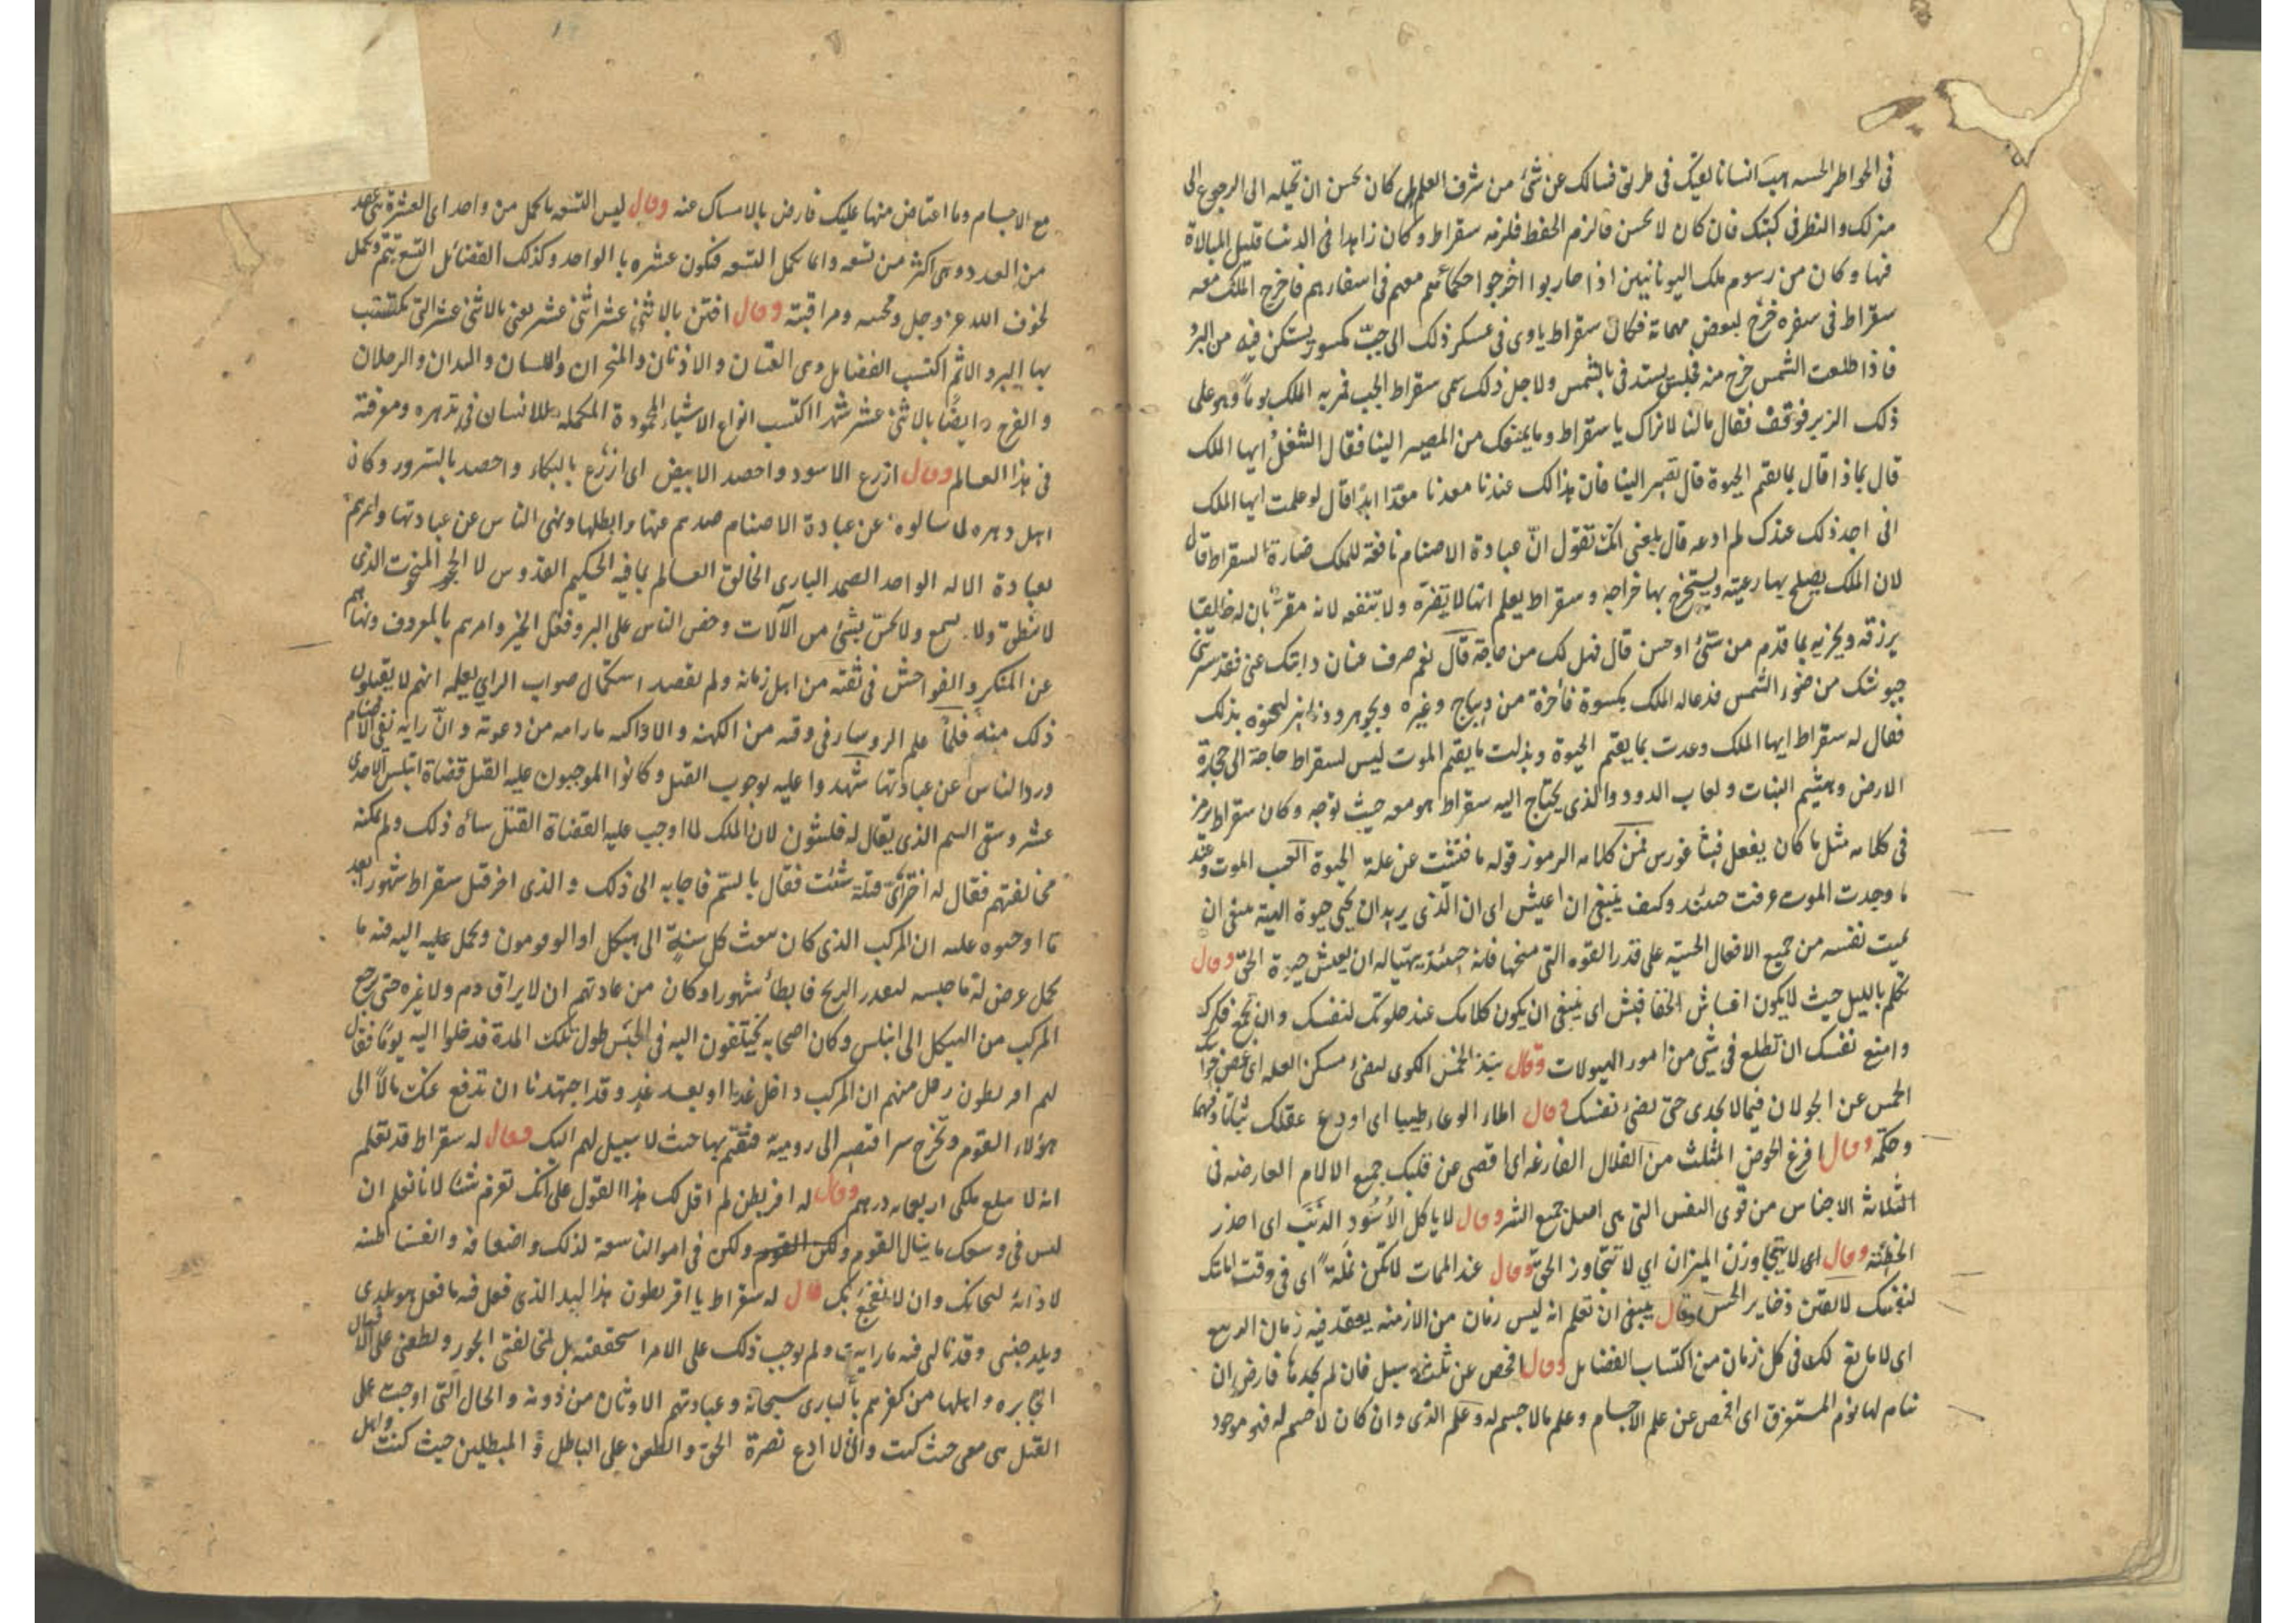 في الخواطر الحسه هب انسانا لقيك في طريق فسالك عن شئ من شرف العلم هل كان يحسن ان تحيله الى الرجوع الى
منزلك والنظر في كتبك فان كان لا يحسن فالزم الحفظ فلزمه سقراط وكان زاهدا في الدنيا قليل المبالاة
فيها وكان من رسوم ملك اليونانيين اذا حاربوا اخرجوا حكمائهم معهم في اسفارهم فاخرج الملك معه
سقراط في سفره خرج لبعض مهماته فكان سقراط ياوى في عسكر ذلك الى جب مكسور يستكن فيه من البرد
فاذا طلعت الشمس خرج منه فجلس يستدفى بالشمس ولاجل ذلك سمى سقراط الجب فمر به الملك يوماً وهو على
ذلك الزير فوقف فقال مالنا لا نراك يا سقراط وما يمنعك من المصير الينا فقال الشغل ايها الملك
قال بماذا قال بما يقيم الحيوة قال تصير الينا فان هذا لك عندنا معدنا معدّا ابدا قال لو علمت ايها الملك
انى اجد ذلك عندك لم ادعه قال بلغنى انك تقول انّ عبادة الاصنام نافعة للملك ضارة لسقراط قال
لان الملك يصلح بها رعيته ويستخرج بها خراجه وسقراط يعلم انها لا تضره ولا تنفعه لانه مقر بان له خالقا
يرزقه ويجزيه بما قدم من سئ او حسن قال فهل لك من حاجة قال نعم صرف عنان دابتك عنى فقد سترتنى
جيوشك من ضوء الشمس فدعا له الملك بكسوة فاخرة من ديباج وغيره وبجوهر ودنانير ليحبوه بذلك
فقال له سقراط ايها الملك وعدت بما يقيم الحيوة وبذلت ما يقيم الموت ليس لسقراط حاجة الى حجارة
الارض وهشيم النبات ولعاب الدود والذى يحتاج اليه سقراط هو معه حيث توجه وكان سقراط يرمز
في كلامه مثل ما كان يفعل فيثاغورس فمن كلامه الرموز قوله ما فتشت عن علة الحيوة الفيت الموت وعند
ما وجدت الموت عرفت حينئذ وكيف ينبغى ان اعيش اى ان الذى يريد ان يحيى حيوة الهية ينبغى ان
يميت نفسه من جميع الافعال الحسية على قدر القوه التى منحها فانه حينئذ يهيئا له ان يعيش حيوة الحق وقال
تكلم بالليل حيث لا يكون اعشاش الخفافيش اى ينبغى ان يكون كلامك عند خلوتك لنفسك وان تجمع فكرك
وامنع نفسك ان تطلع في شى من امور الهيولات وقال سد الخمس الكوى ليضئ مسكن العله اى غمض حواسك
الخمس عن الجولان فيما لا يجدى حتى تضئ نفسك وقال املاء الوعاء طيبا اى اودع عقلك بيانا وفهما
وحكمة وقال افرغ الحوض المثلث من القلال الفارغه اى اقصى عن قلبك جميع الالام العارضه في
الثلاثة الاجناس من قوى النفس التى هى اصل جميع الشر وقال لا ياكل الاسود الذنب اى احذر
الخطيئة وقال اى لا يتجاوزن الميزان اى لا تتجاوز الحق وقال عند الممات لا تكن نملة اى في وقت اماتك
لنفسك لا تقتن ذخاير الحس وقال ينبغى ان تعلم انه ليس زمان من الازمنه يعقد فيه زمان الربيع
اى لا مانع لك في كل زمان من اكتساب الفضايل وقال افحص عن ثلثة سبل فان لم تجدها فارض ان
تنام لها نوم المستغرق اى افحص عن علم الاجسام وعلم مالا جسم له وعلم الذى وان كان لا جسم له فهو موجود
مع الاجسام وما اعتاض منها عليك فارض بالامساك عنه وقال ليس التسعه باكمل من واحد اى العشرة هى عقد
من العدد وهى اكثر من تسعه وانما تكمل التسعه فتكون عشره بالواحد وكذلك الفضائل التسع تتم وتكمل
لخوف الله عز وجل ومحبته ومراقبته وقال اقتن بالاثنى عشر اثنى عشر يعنى بالاثنى عشر التى تكتسب
بها البر والاثم اكتسب الفضايل وهى العينان والاذنان والمنخران واللسان واليدان والرجلان
والفرج وايضا بالاثنى عشر شهرا اكتسب انواع الاشياء المحمودة المكمله للانسان في تدبيره ومعرفته
في هذا العالم وقال ازرع الاسود واحصد الابيض اى ازرع بالبكاء واحصد بالسرور وكان
اهل دهره لما سالوه عن عبادة الاصنام صدهم عنها وابطلها ونهى الناس عن عبادتها وامرهم
بعبادة الاله الواحد الصمد البارى الخالق العالم بما فيه الحكيم القدوس لا الحجر المنحوت الذى
لا ينطق ولا يسمع ولا يحس بشئ من الآلات وحض الناس على البر وفعل الخير وامرهم بالمعروف ونهاهم
عن المنكر والفواحش في ثقته من اهل زمانه ولم يقصد استكمال صواب الراى لعلمه انهم لا يقبلون
ذلك منه فلما علم الروساء في وقته من الكهنه والاراكنه ما رامه من دعوته وانّ رايه نفى الاصنام
ورد الناس عن عبادتها شهدوا عليه بوجوب القتل وكانوا الموجبون عليه القتل قضاة اثينس الاحدى
عشر وسقى السم الذى يقال له قلسثون لان الملك لما اوجب عليه القضاة القتل ساءه ذلك ولم يمكنه
مخالفتهم فقال له اختر اى قتلة شئت فقال بالسم فاجابه الى ذلك والذى اخر قتل سقراط شهورا بعد
ما اوجبوه عليه ان المركب الذى كان يبعث كل سنة الى هيكل اوالوفومون ويحمل عليه اليه فيه ما
يحمل عرض له ما حبسه لتعذر الريح فابطأ شهورا وكان من عادتهم ان لا يراق دم ولا غيره حتى يرجع
المركب من الهيكل الى اثينس وكان اصحابه يختلفون اليه في الحبس طول تلك المدة فدخلوا اليه يوماً فقال
لهم اقريطون رجل منهم ان المركب داخل غدا او بعد غد وقد اجتهدنا ان ندفع عنك مالاً الى
هؤلاء القوم وتخرج سرا فتصير الى رومية فتقيم بها حيث لا سبيل لهم اليك فقال له سقراط قد تعلم
انه لا يبلغ ملكى اربعمايه درهم وقال له اقريطن لم اقل لك هذا القول على انك تغرم شئا لانا نعلم ان
ليس في وسعك ما ينال القوم ولكن القوم ولكن في اموالنا سعة لذلك واضعافه وانفسنا طيبه
لادائه لنجاتك وان لا نفجع بك قال له سقراط يا اقريطون هذا البلد الذى فعل فيه ما فعل هو بلدى
وبلد جنسى وقد نالنى فيه ما رايت ولم يوجب ذلك على الامر استحققته بل لمخالفتى الجور ولطعنى على الافعال
الجابره واهلها من كفرهم بالبارى سبحانه وعبادتهم الاوثان من دونه والحال التى اوجبت على
القتل هى معى حيث كنت وانى لا ادع نصرة الحق والطعن على الباطل و المبطلين حيث كنت واهل